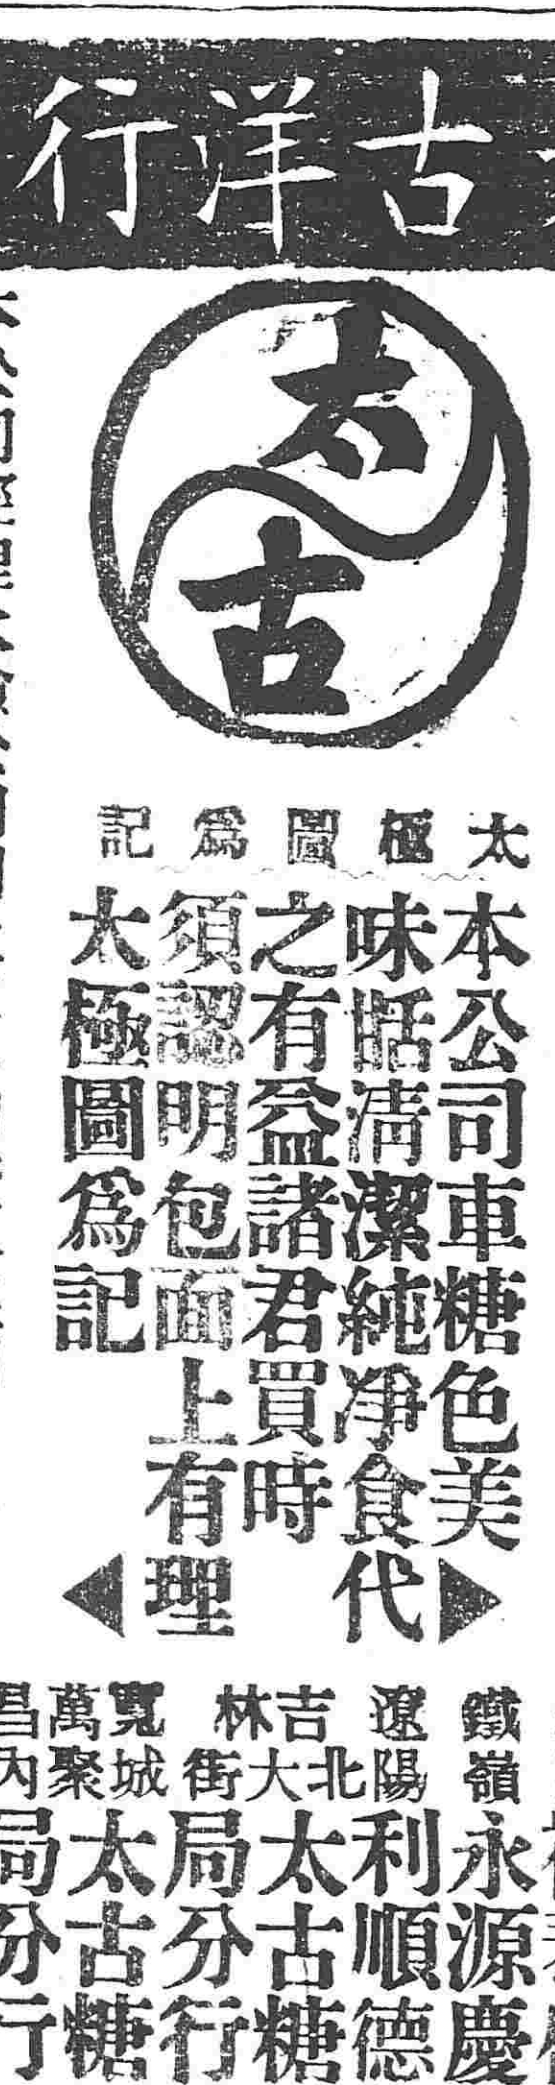 古洋行
太
古
太極圖爲記
本公司車糖色美
味甛淸潔純凈食
之有益諸君買時
須認明包面上有
太極圖爲記
代
理
鐵嶺
永源慶
遼陽
利順德
吉林
北大街
太古糖
局分行
寬城
萬聚
昌內
太古糖
局分行